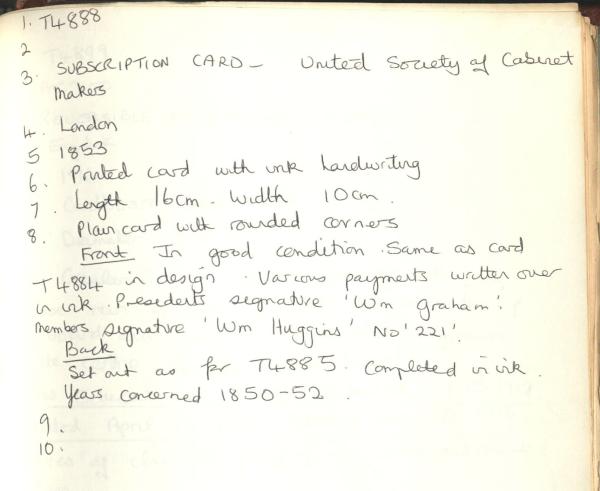 1. T4888
2
3. SUBSCRIPTION CARD - United Society of Cabinet
Makers
4. London
5 1853
6. Printed card with ink handwriting
7. Length 16cm. Width 10cm.
8. Plain card with rounded corners
Front In good condition. Same as card
T4884 in design. Various payments written over
in ink. Presedents signature 'Wm Graham'.
members signature 'Wm Huggins' No '221'.
Back
Set out as for T4885. Completed in ink.
Years concerned 1850-52.
9.
10.